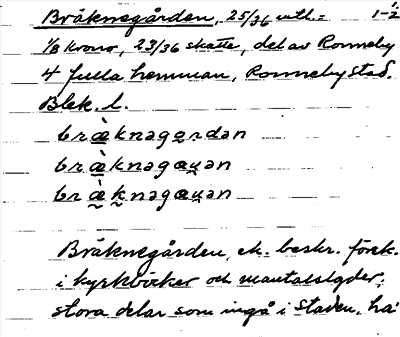 Bräknegården, 25/36 mtl. = 1-½
1/8 krono, 23/36 skatte, del av Ronneby
4 fulla hemman, Ronneby stad.
Blek. l.
bræ̀knəgɑrdən
bræ̀knəgɑɯən
bræ̀knəgɑɯən
Bräknegården, ek. beskr. förek.
i kyrkböcker och mantalslgder;
stora delar som ingå i staden, ha